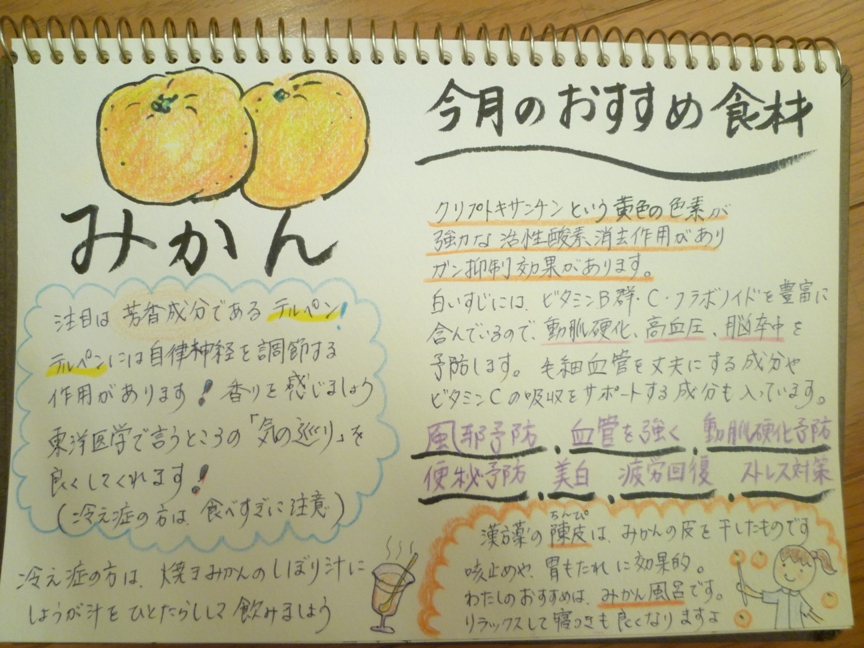 今月のおすすめ食材
みかん
注目は芳香成分であるテルペン!
テルペンには自律神経を調節する
作用があります!香りを感じましょう
東洋医学で言うところの「気の巡り」を
良くしてくれます!
(冷え症の方は、食べすぎに注意)
冷え症の方は、焼きみかんのしぼり汁に
しょうが汁をひとたらしして飲みましょう
クリプトキサンチンという黄色の色素が
強力な活性酸素消去作用があり
ガン抑制効果があります。
白いすじには、ビタミンB群・C・フラボノイドを豊富に
含んでいるので、動脈硬化、高血圧、脳卒中を
予防します。毛細血管を丈夫にする成分や
ビタミンCの吸収をサポートする成分も入っています。
風邪予防、血管を強く、動脈硬化予防
便秘予防、美白、疲労回復、ストレス対策
ちんぴ
漢方薬の陳皮は、みかんの皮を干したものです
咳止めや、胃もたれに効果的。
わたしのおすすめは、みかん風呂です。
リラックスして寝つきも良くなりますよ